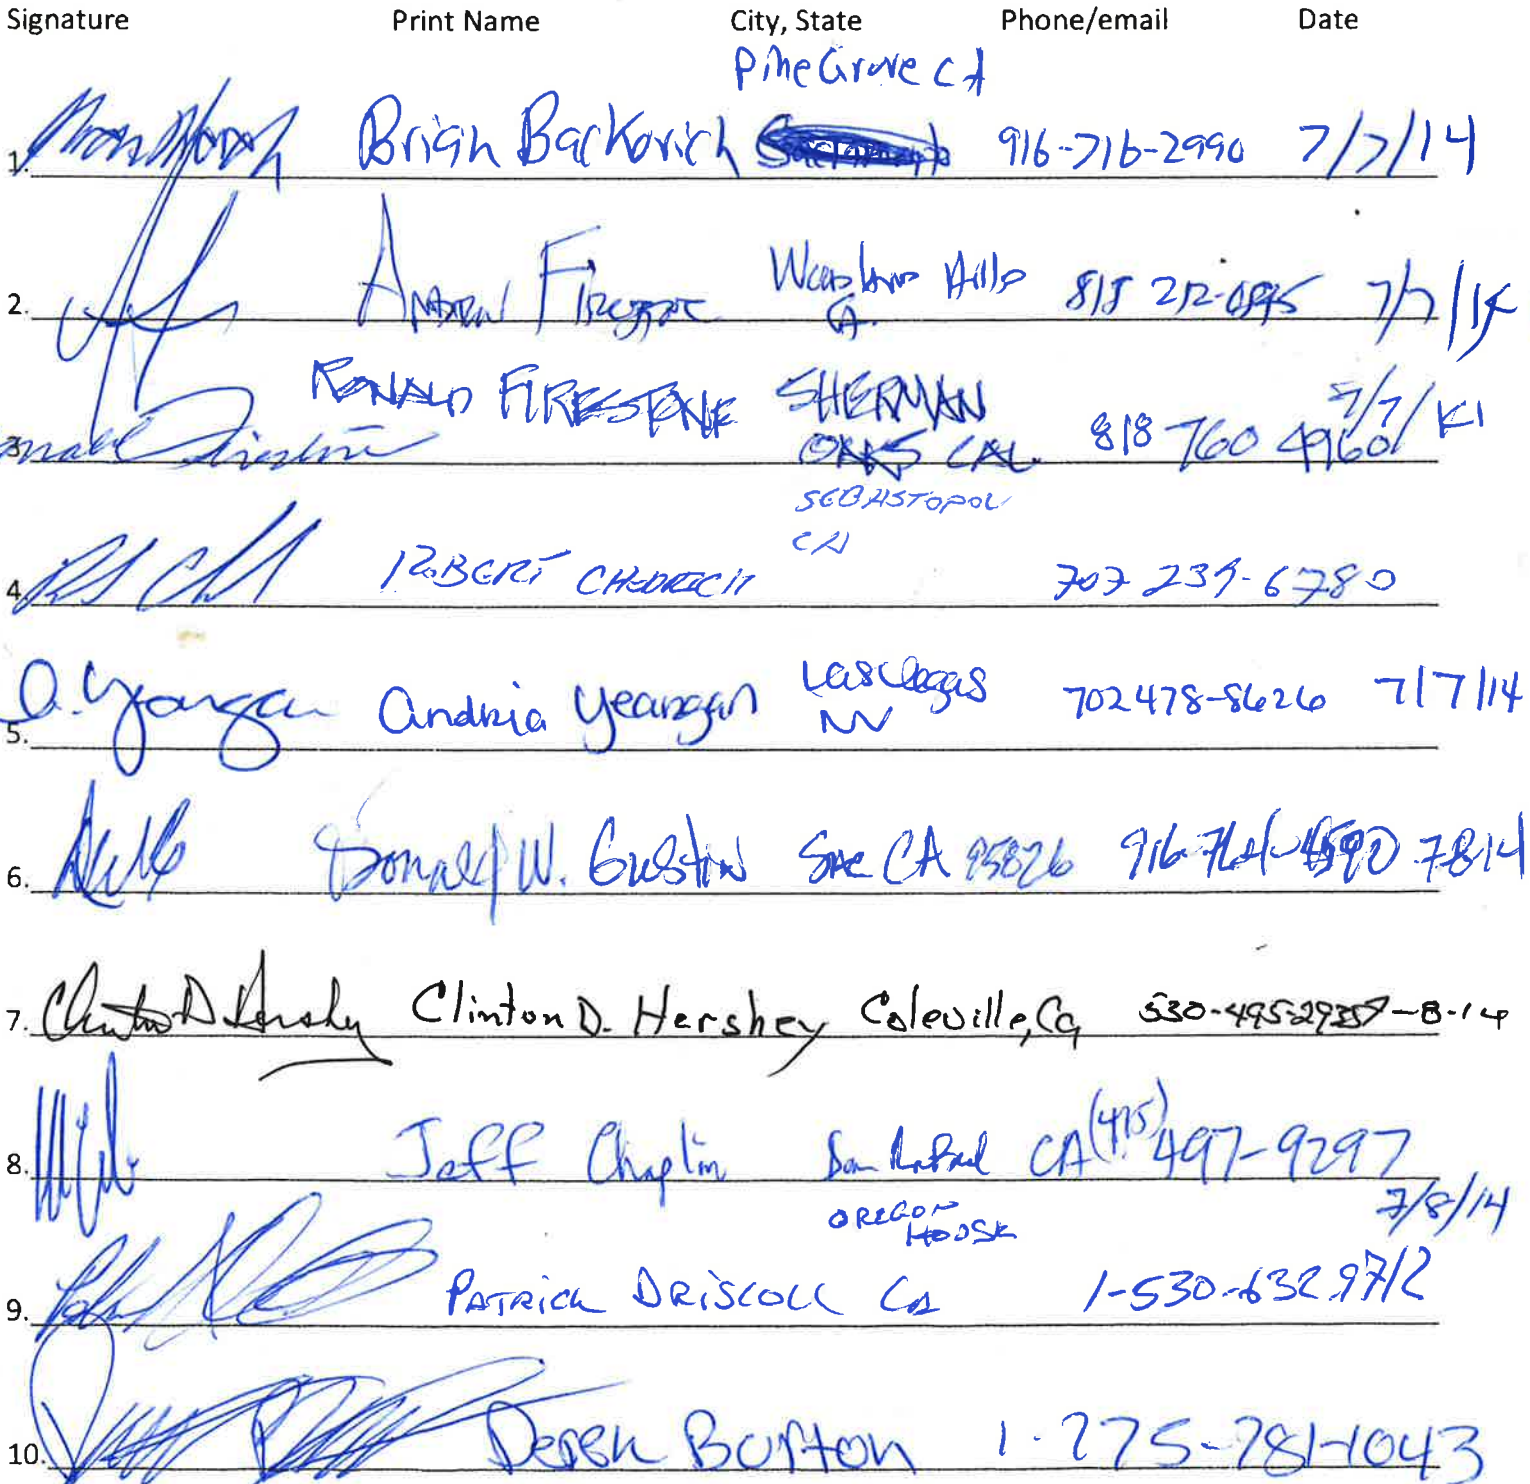 Signature Print Name City, State Phone/email Date
Pine Grove CA
1. Brian Backovich 916-716-2990 7/7/14
2. Andrew Firestone Woodland Hills CA. 818 212- 7/7/14
RONALD FIRESTONE SHERMAN 7/7/14
3. OAKS CAL. 818 760 4960
SEBASTOPOL
CA
4. ROBERT 707 239-6780
5. A. Yeargan Andria Yeargan Las Vegas NV 702 478-8626 7/7/14
6. Donald W. Gustin Sac CA 95826 916- 7814
7. Clinton D. Hershey Clinton D. Hershey Coleville, Ca 530-495-2935 7-8-14
8. Jeff Chaplin San Rafael CA (415) 497-9297
OREGON 7/8/14
HOUSE
9. PATRICK DRISCOLL CA 1-530-632 9712
10. Derek Burton 1-775-781-1043